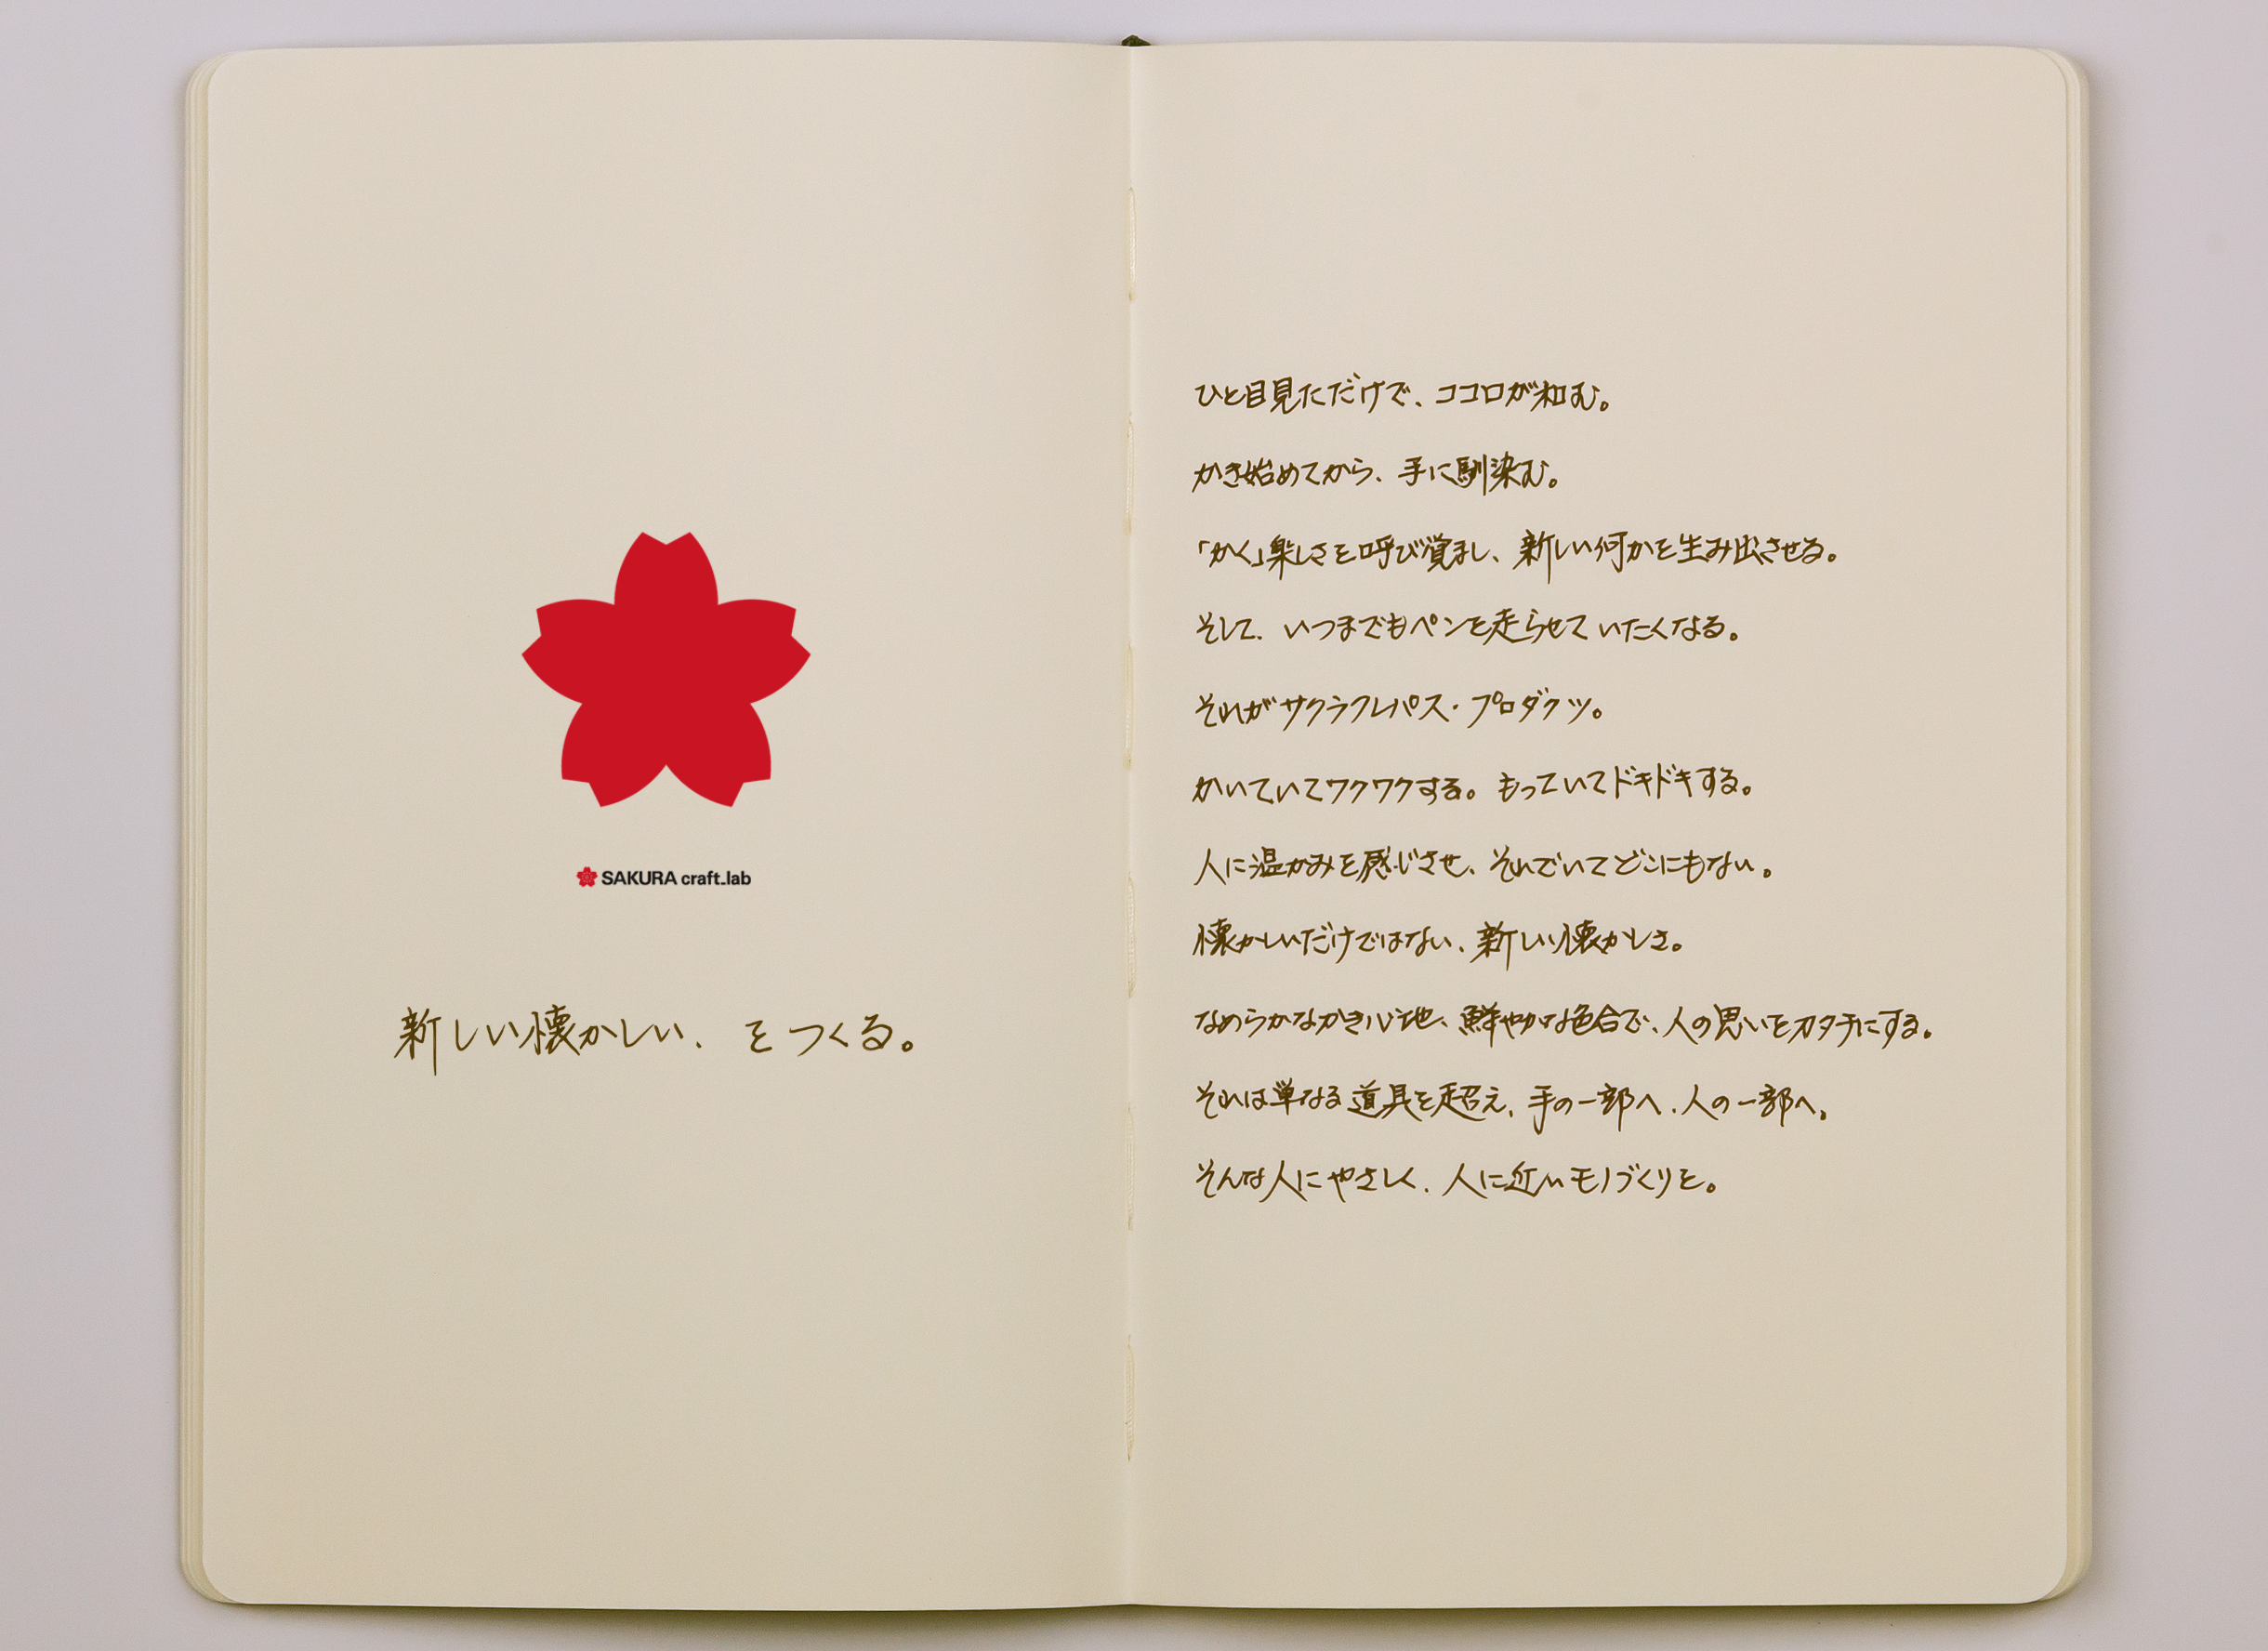 SAKURA craft_lab
新しい懐かしい、をつくる。
ひと目見ただけで、ココロが和む。
かき始めてから、手に馴染む。
「かく」楽しさを呼び覚まし、新しい何かを生み出させる。
そして、いつまでもペンを走らせていたくなる。
それがサクラクレパス・プロダクツ。
かいていてワクワクする。もっていてドキドキする。
人に温かみを感じさせ、それでいてどこにもない。
懐かしいだけではない、新しい懐かしさ。
なめらかなかき心地、鮮やかな色合で、人の思いをカタチにする。
それは単なる道具を超え、手の一部へ、人の一部へ。
そんな人にやさしく、人に近いモノづくりを。